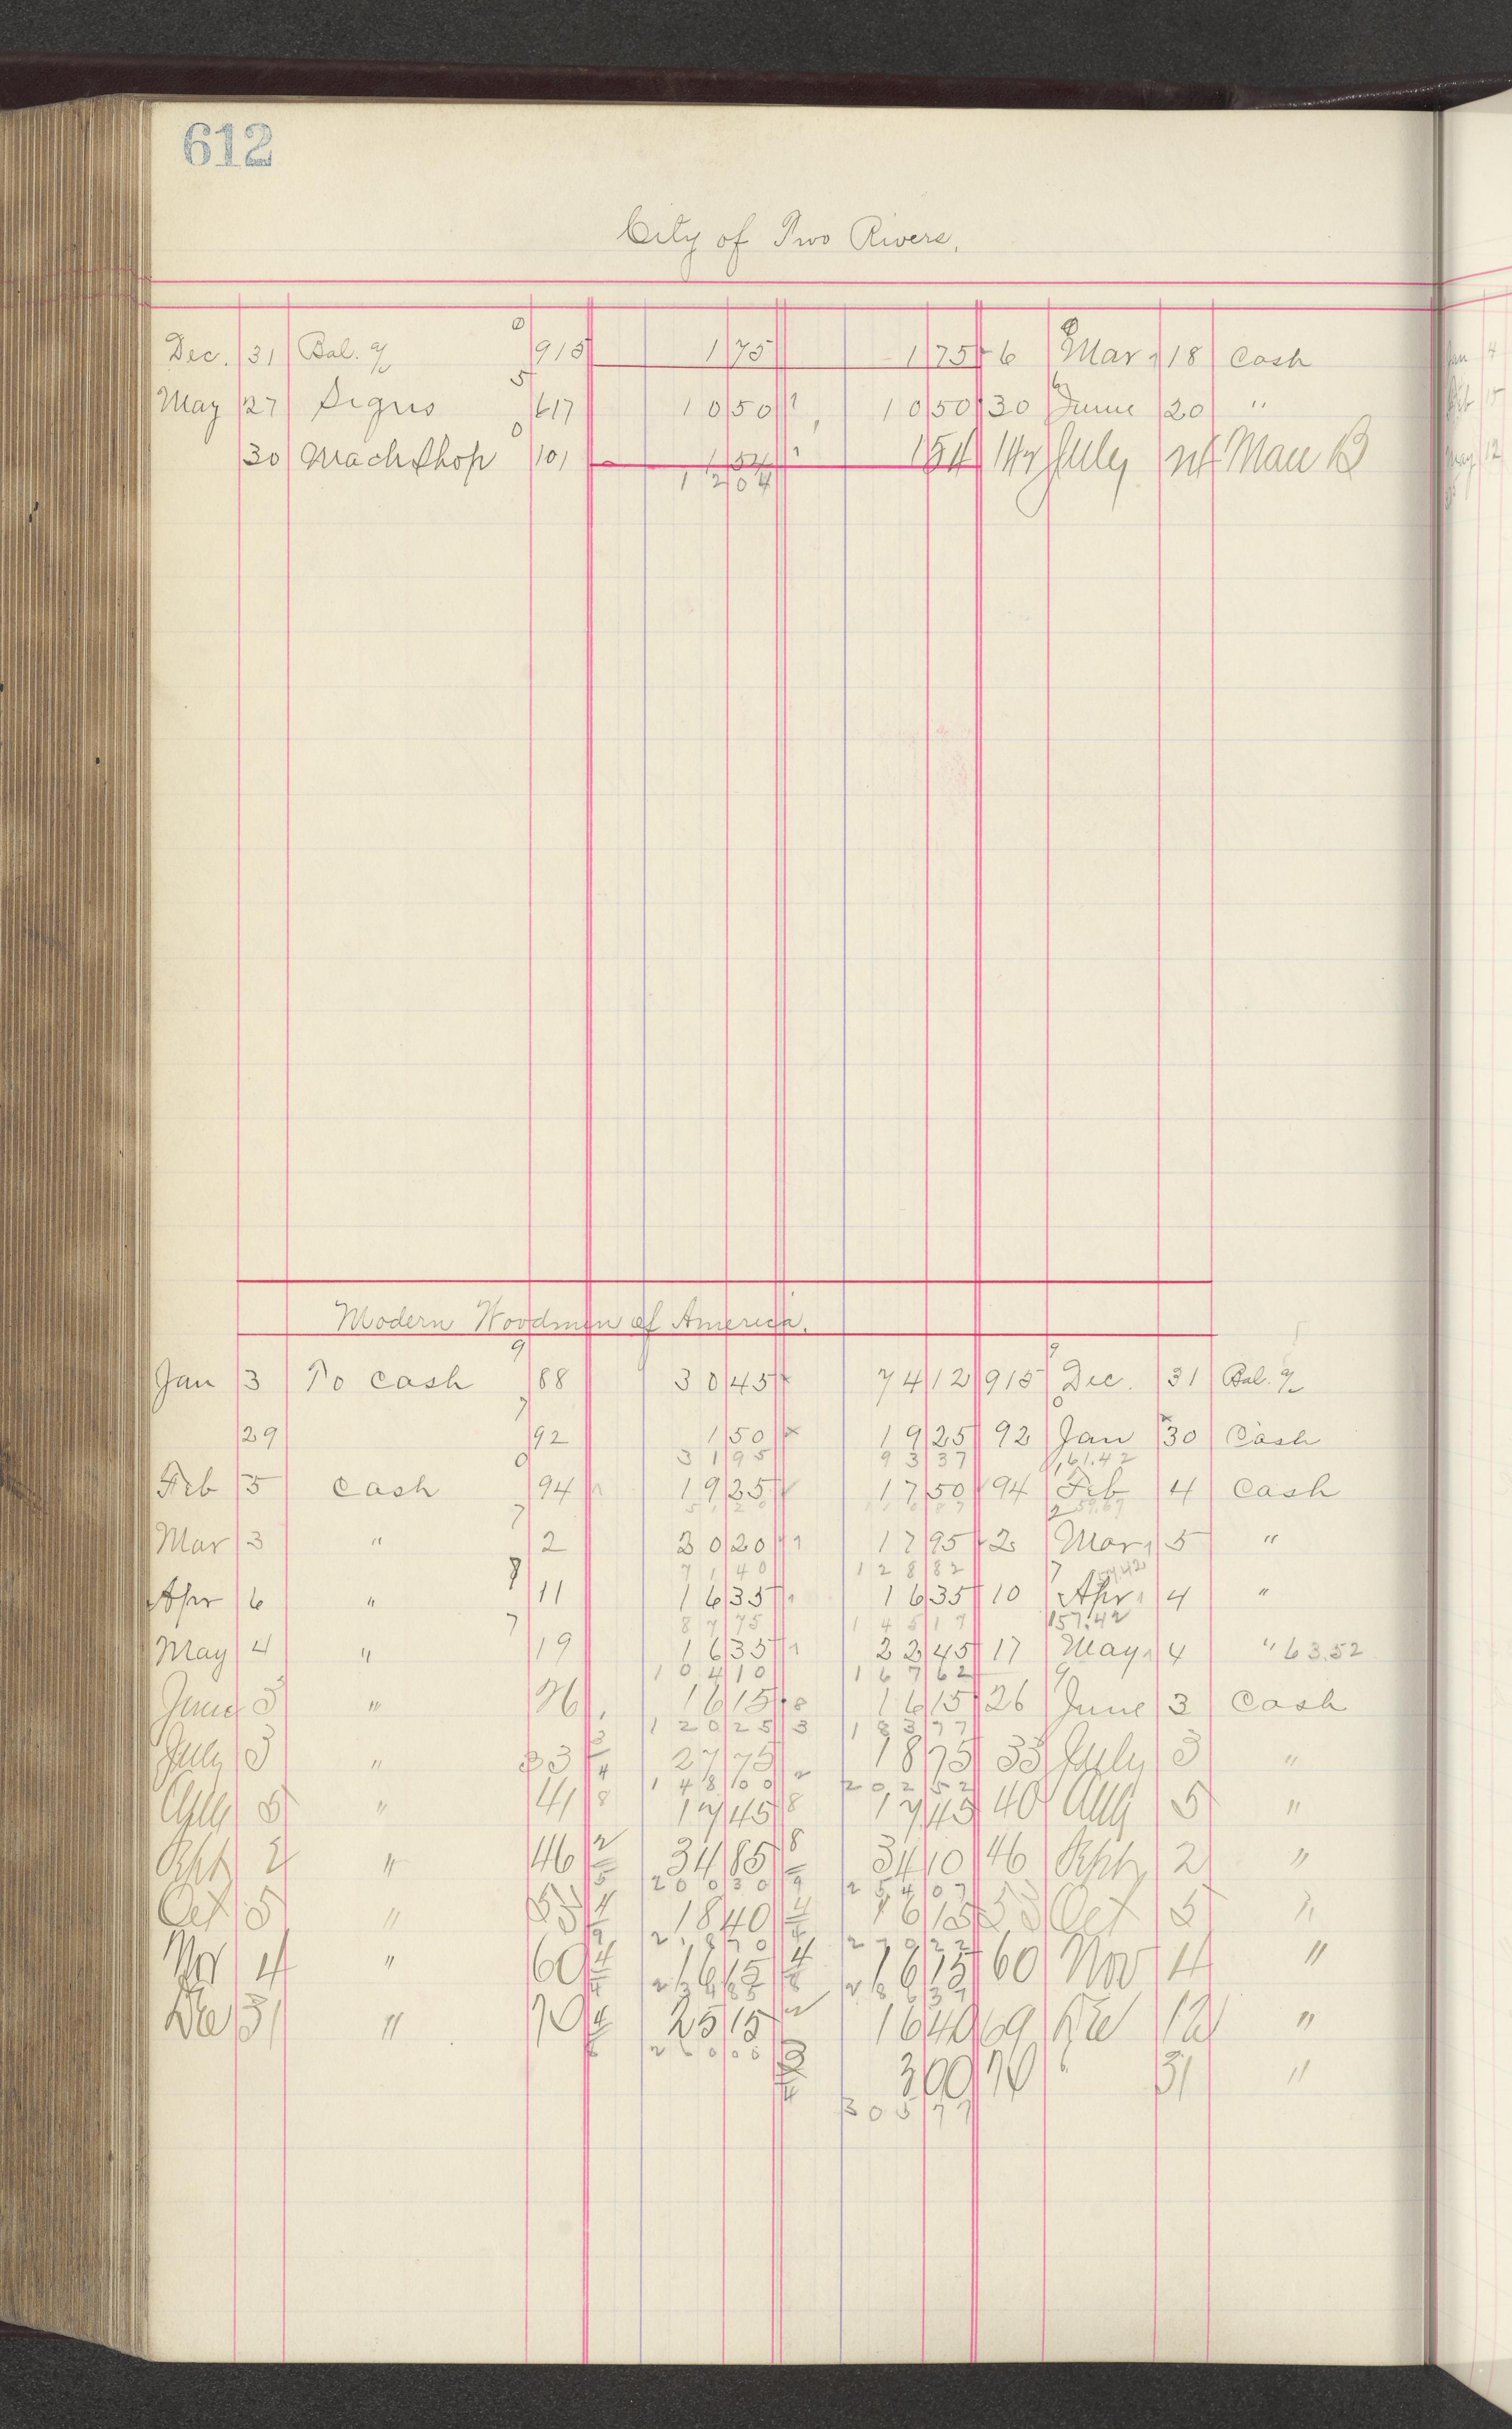 612
City of Two Rivers.
Dec. 31 Bal. 915 1 75 1 75 6 Mar 18 Cash
May 27 Signs 617 10 50 10 50 30 June 20 "
30 Mach Shop 101 1 54 1 54 July Man B
12 04
Modern Woodmen of America.
Jan 3 To Cash 88 30 45 74 12 915 Dec. 31 Bal.
29 92 1 50 19 25 92 Jan 30 Cash
31 95 93 37 161.42
Feb 5 Cash 94 19 25 17 50 94 Feb 4 Cash
Mar 3 " 2 20 20 17 95 2 Mar 5 "
71 40 128 82
Apr 6 " 11 16 35 16 35 10 Apr 4 "
87 75 145 17 157.42
May 4 " 19 16 35 22 45 17 May 4 " 63.52
104 10 167 62
June 3 " 26 16 15 16 15 26 June 3 Cash
120 25 183 77
July 3 " 33 27 75 18 75 33 July 3 "
148 00 202 52
Aug 5 " 41 17 45 17 45 40 Aug 5 "
Sept 2 " 46 34 85 34 10 46 Sept 2 "
200 30 254 07
Oct 5 " 53 18 40 16 15 53 Oct 5 "
218 70 270 22
Nov 4 " 60 16 15 16 15 60 Nov 4 "
234 85 286 37
Dec 31 " 70 25 15 16 40 69 Dec 12 "
260 00
3 00 70 " 31 "
305 77